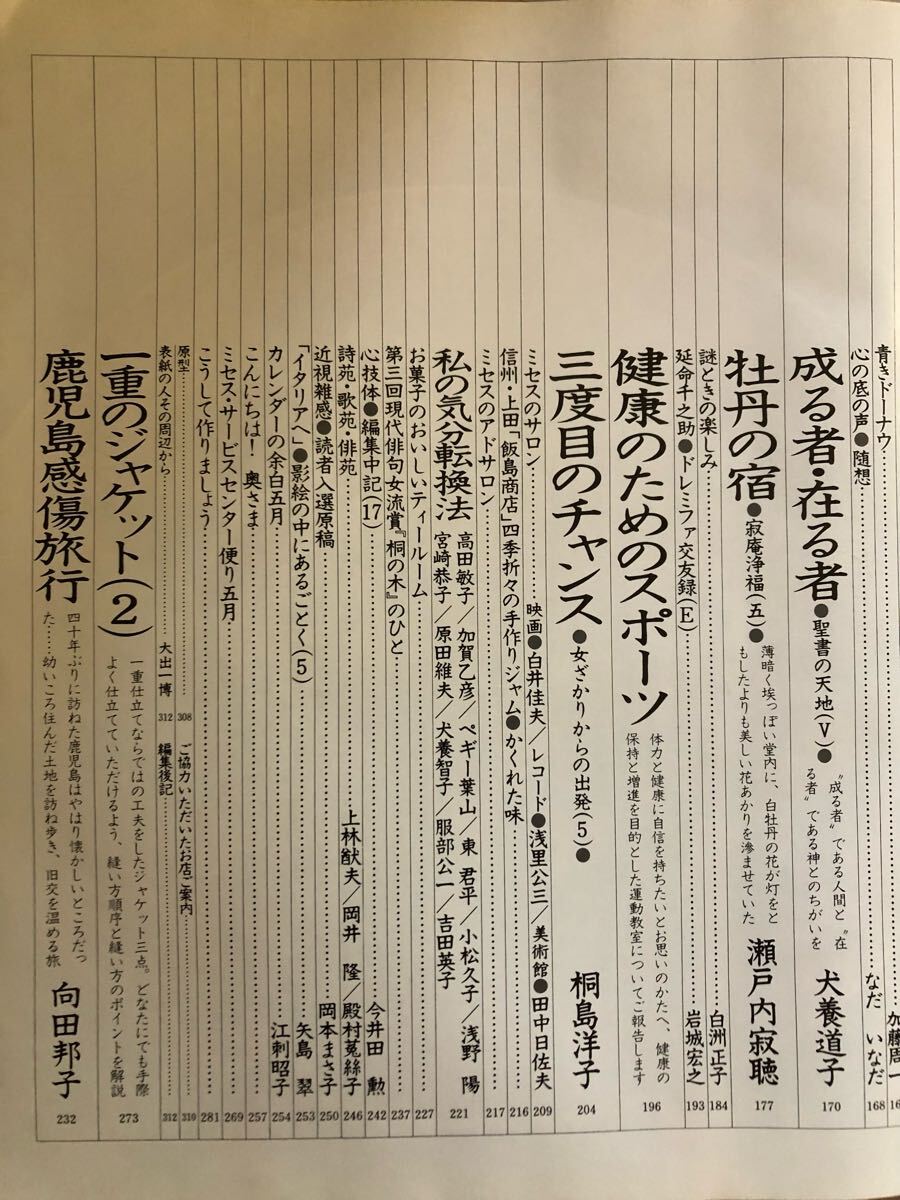 青きドーナウ……加藤周一
心の底の声●随想……なだ いなだ 168
成る者・在る者●聖書の天地(Ⅴ)●
〝成る者〟である人間と〝在
る者〟である神とのちがいを
犬養道子 170
牡丹の宿●寂庵浄福(五)●
薄暗く埃っぽい堂内に、白牡丹の花が灯をと
もしたよりも美しい花あかりを滲ませていた
瀬戸内寂聴 177
謎ときの楽しみ……白洲正子 184
延命千之助●ドレミファ交友録(E)……岩城宏之 193
健康のためのスポーツ
体力と健康に自信を持ちたいとお思いのかたへ、健康の
保持と増進を目的とした運動教室についてご報告します
196
三度目のチャンス●女ざかりからの出発(5)●
桐島洋子 204
ミセスのサロン……映画●白井佳夫/レコード●浅里公三/美術館●田中日佐夫 209
信州・上田「飯島商店」四季折々の手作りジャム●かくれた味……216
ミセスのアドサロン……217
私の気分転換法
高田敏子/加賀乙彦/ペギー葉山/東 君平/小松久子/浅野 陽
宮崎恭子/原田維夫/犬養智子/服部公一/吉田英子
221
お菓子のおいしいティールーム……227
第三回現代俳句女流賞『桐の木』のひと……237
心技体●編集中記(17)……今井田 勲 242
詩苑・歌苑・俳苑……上林猷夫/岡井 隆/殿村菟絲子 246
近視雑感●読者入選原稿……岡本まさ子 250
「イタリアへ」●影絵の中にあるごとく(5)……矢島 翠 253
カレンダーの余白五月……江刺昭子 254
こんにちは! 奥さま……257
ミセス・サービスセンター便り五月……269
こうして作りましょう……281
原型……308
ご協力いただいたお店ご案内……310
表紙の人その周辺から……大出一博 312
編集後記……312
一重のジャケット(2)
一重仕立てならではの工夫をしたジャケット三点。どなたにでも手際
よく仕立てていただけるよう、縫い方順序と縫い方のポイントを解説
273
鹿児島感傷旅行
四十年ぶりに訪ねた鹿児島はやはり懐かしいところだっ
た……幼いころ住んだ土地を訪ね歩き、旧交を温める旅
向田邦子 232